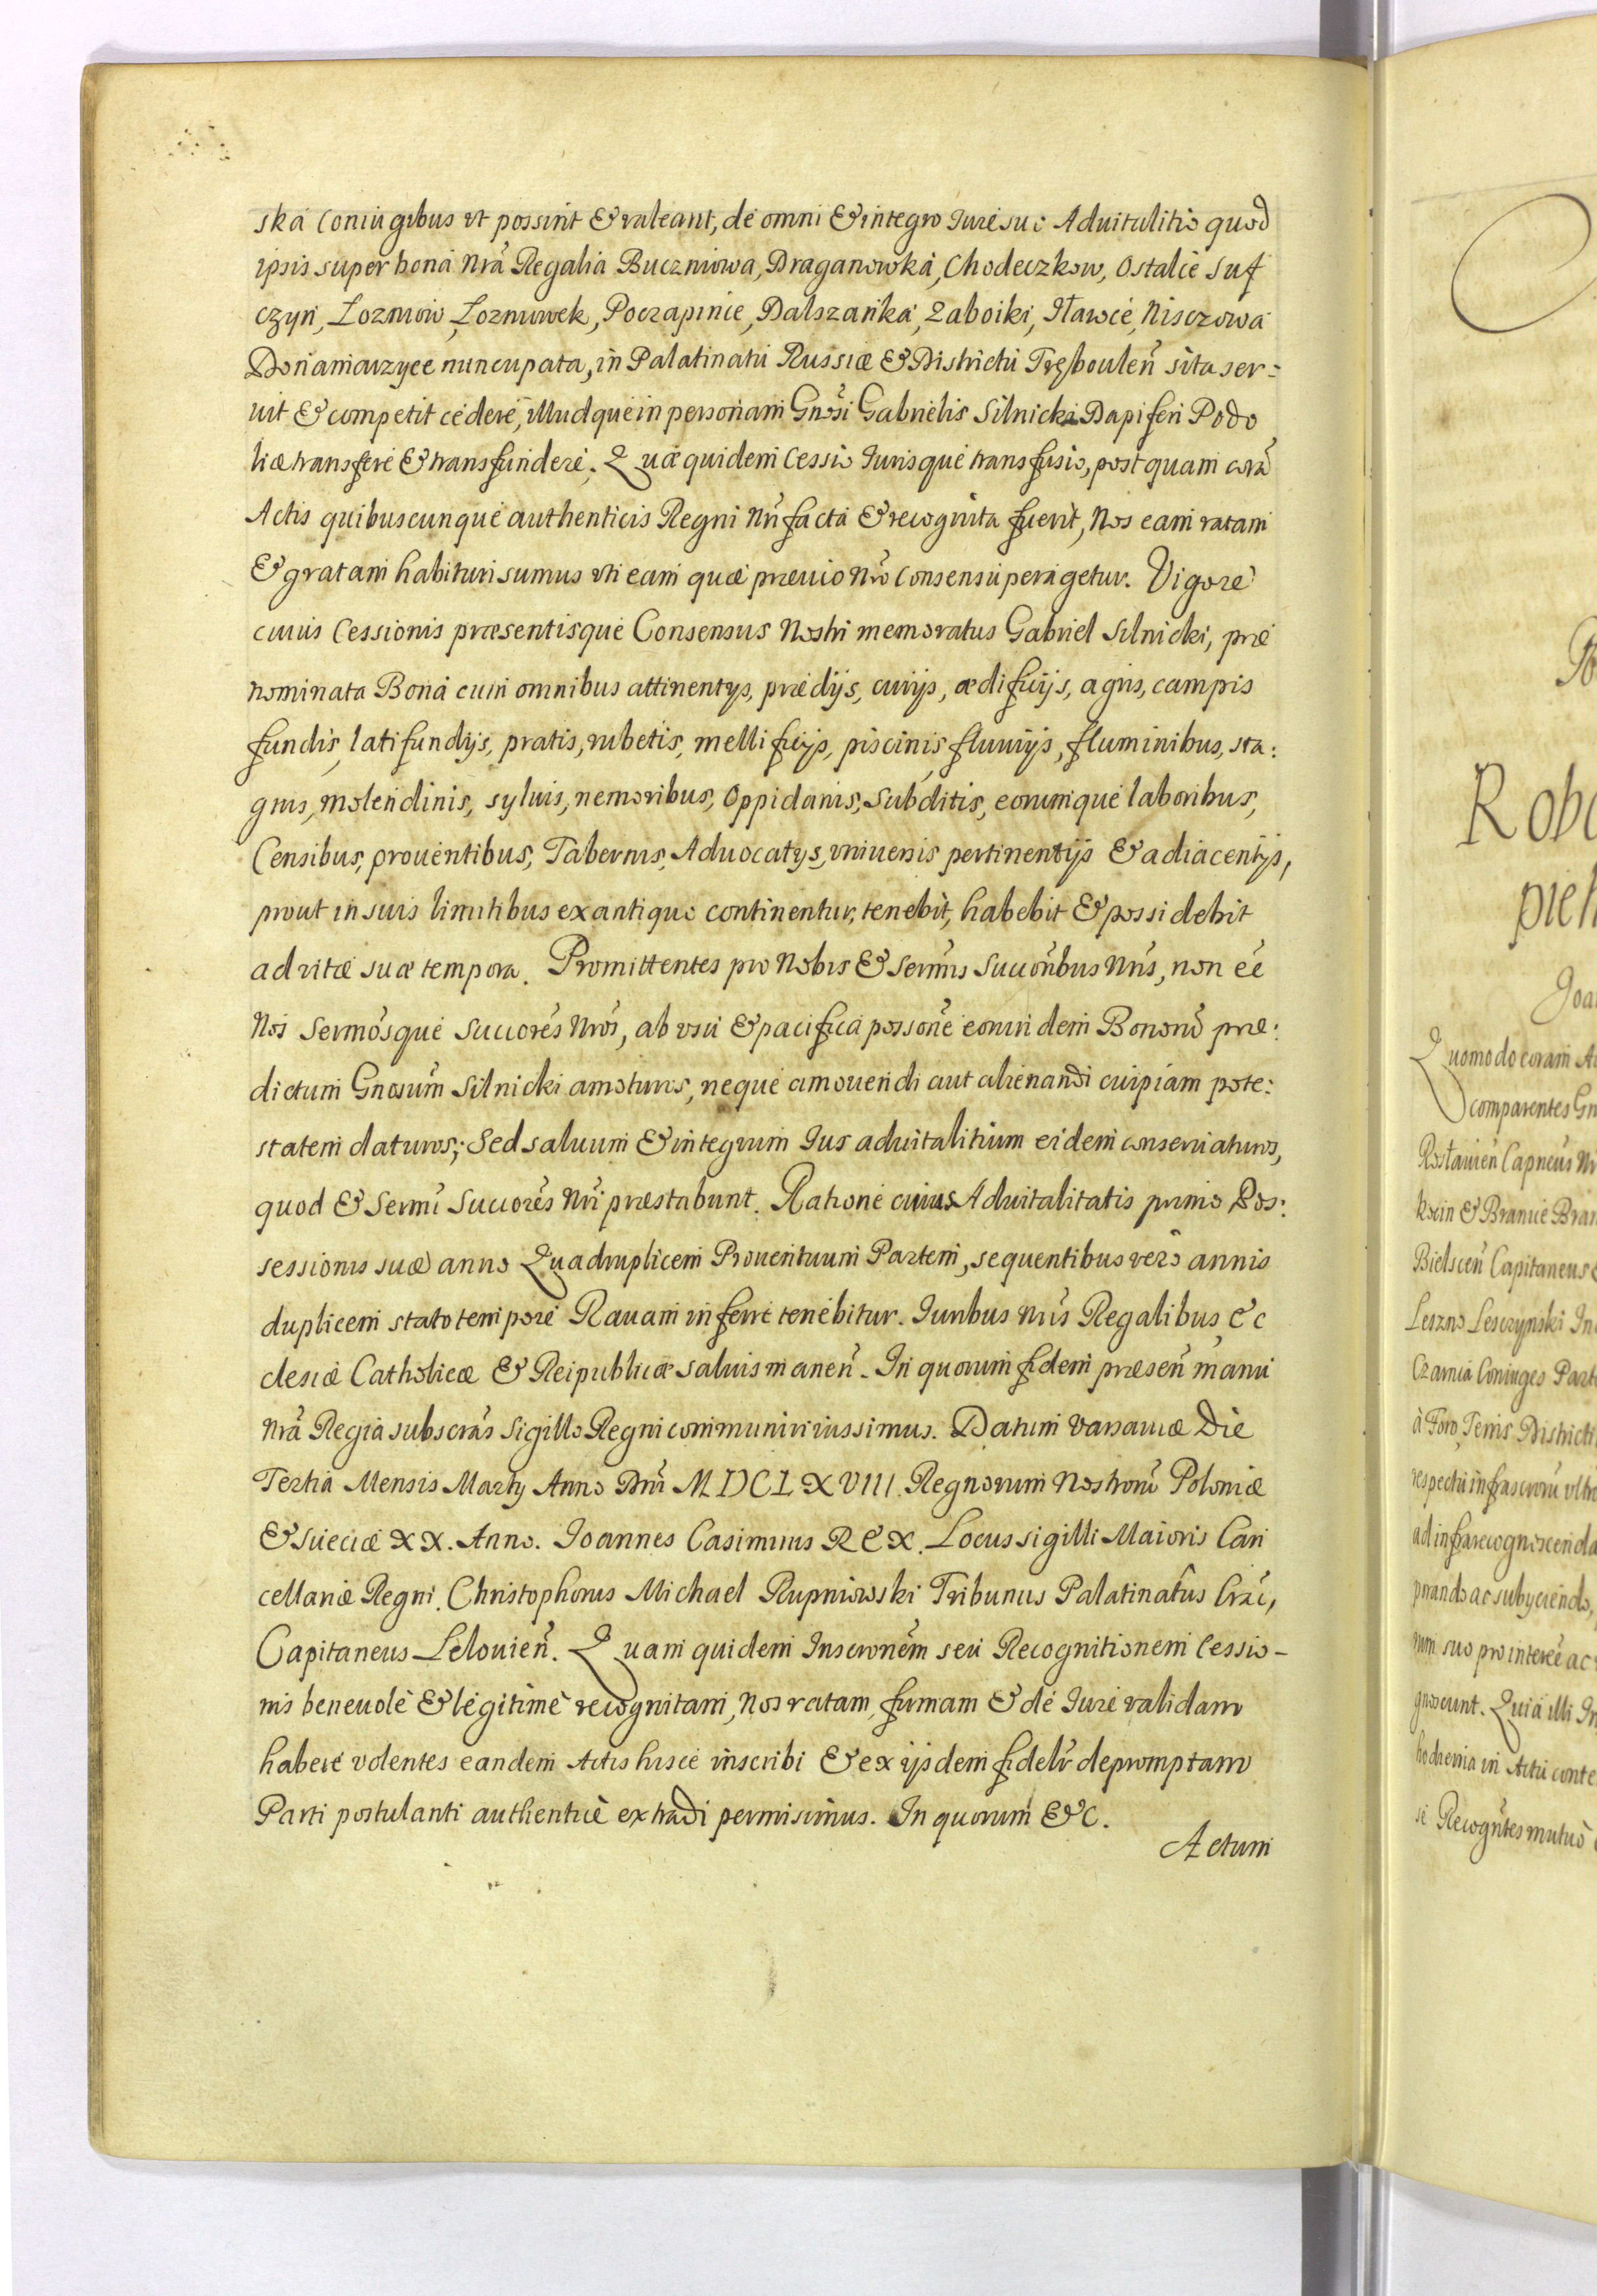 ska Coniugibus vt possint & valeant, de omni & integro Iure suo Aduitalitio quod
ipsis super bona Nrã Regalia Buczniowa, Draganowka, Chodeczkow, Ostalce Suf
czyn, Lozniow, Loznuwek, Poczapince, Dalszanka, Zaboiki, Iławce, Nisczowa
Donamarzyce nuncupata, in Palatinatu Russiæ & Districtu Tręboulen̄ sita ser=
uit & competit cedere, illudque in personam Gnõsi Gabrielis Silnicki Dapiferi Podo
liæ transfere & transfundere. Quæ quidem Cessio Iurisque transfusio, postquam corã
Actis quibuscunque authenticis Regni Nr̃i facta & recognita fuerit, Nos eam ratam
& gratam habituri sumus vti eam quæ præuio Nrõ Consensu peragetur. Vigore
cuius Cessionis præsentisque Consensus Nostri memoratus Gabriel Silnicki, præ
nominata Bona cum omnibus attinentijs, prædijs, curijs, ædificijs, agris, campis
fundis, latifundijs, pratis, rubetis, mellificijs, piscinis, fluuijs, fluminibus, sta:
gnis, molendinis, syluis, nemoribus, Oppidanis, Subditis, eorumque laboribus,
Censibus, prouentibus, Tabernis, Aduocatijs, vniuersis pertinentijs & adiacentijs,
prout in suis limitibus ex antiquo continentur, tenebit, habebit & possidebit
ad vitæ suæ tempora. Promittentes pro Nobis & Sermis Succoribus Nris, non eẽ
Nos Sermosque Succores Nros, ab vsu & pacifica possone eorundem Bonorũ præ:
dictum Gnosum Silnicki amoturos, neque amouendi aut alienandi cuipiam pote:
statem daturos; Sed saluum & integrum Ius aduitalitium eidem conseruaturos,
quod & Sermi Succores Nri præstabunt. Ratione cuius Aduitalitatis primo Pos:
sessionis suæ anno Quadruplicem Prouentuum Partem, sequentibus vero annis
duplicem stato tempore Rauam inferre tenebitur. Iuribus Nris Regalibus Ec
clesiæ Catholicæ & Reipublicæ saluis manen̄. In quorum fidem præsen̄ manu
Nrã Regia subscrãs Sigillo Regni communiri iussimus. Datum Varsauiæ Die
Tertia Mensis Martij Anno Dñi MDCLXVIII. Regnorum Nostrorũ Poloniæ
& Sueciæ XX. Anno. Ioannes Casimirus REX. Locus sigilli Maioris Can
cellariæ Regni. Christophorus Michael Rupniowski Tribunus Palatinatus Crac̃,
Capitaneus Lelouien̄. Quam quidem Inscronem seu Recognitionem Cessio-
nis beneuole & legitime recognitam, Nos ratam, firmam & de Iure validam
habere volentes eandem Actis hisce inscribi & ex ijsdem fidelr depromptam
Parti postulanti authentice extradi permisimus. In quorum &c.
Actum
Robo
pieh
Joa
Quomodo coram Ac
comparentes Gn
Rostauien̄ Capneus Nr
kocin & Branice Bran
Bielscen̄ Capitaneus &
Leszno Lesczynski In
Czarnca Coniuges Part
à Foro Terris Districti
respectu infrascrorũ vltro
ad infra recognoscenda
prando ac subijciendo,
rum suo pro interẽe ac
gnoscunt. Quia illi In
hodierna in Actu conte
se Recogntes mutuo